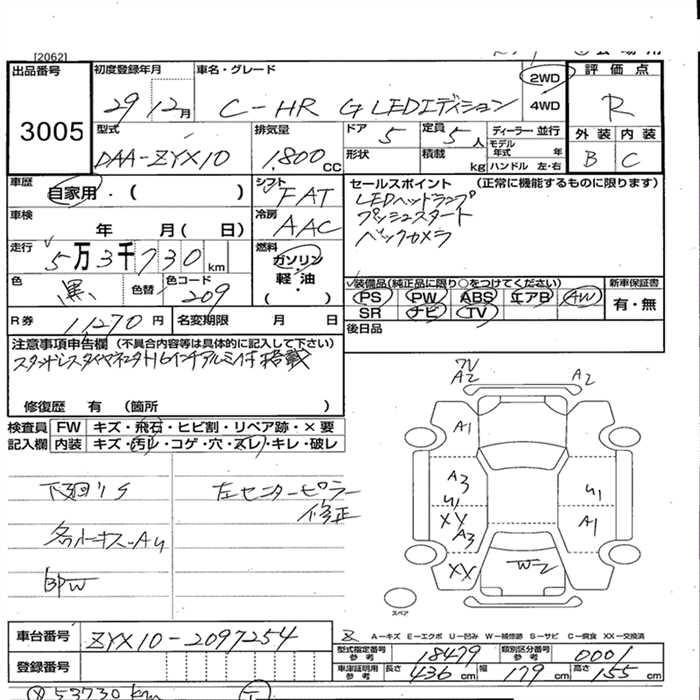 [2062]
出品番号 初度登録年月 車名・グレード 2WD 評価点
3005 29 12月 C-HR G LEDエディション 4WD R
型式 排気量 ドア 定員 ディーラー・並行 外装 内装
DAA-ZYX10 1,800cc 5 5人 モデル年式 年 B C
形状 積載 kg ハンドル 左・右
車歴 シフト セールスポイント (正常に機能するものに限ります)
自家用・( ) FAT LEDヘッドランプ
車検 冷房 プッシュスタート
年 月( 日) AAC バックカメラ
走行 燃料
5万3千730km ガソリン
色 色替 色コード 軽・油
黒 209 ( )
装備品(純正品に限り○をつけてください) 新車保証書
PS PW ABS エアB AW 有・無
SR ナビ TV
R券 11,270円 名変期限 月 日 後日品
注意事項申告欄 (不具合内容等は具体的に記入して下さい)
16インチアルミ付 搭載
修復歴 有 (箇所 )
検査員 FW キズ・飛石・ヒビ割・リペア跡・×要
記入欄 内装 キズ・汚レ・コゲ・穴・スレ・キレ・破レ
下廻りS 左センターピラー
修正
各ルーキズ-AU
BPW
A2 A2
A1
A3 U1
U1
XX A1
A3
XX W2
スペア
車台番号 ZYX10-2097254
A-キズ E-エクボ U-凹み W-補修跡 S-サビ C-腐食 XX-交換済
型式指定番号参考 18479 類別区分番号参考 0001
登録番号 車庫証明用参考 長さ 436cm 幅 179cm 高さ 155cm
53730km